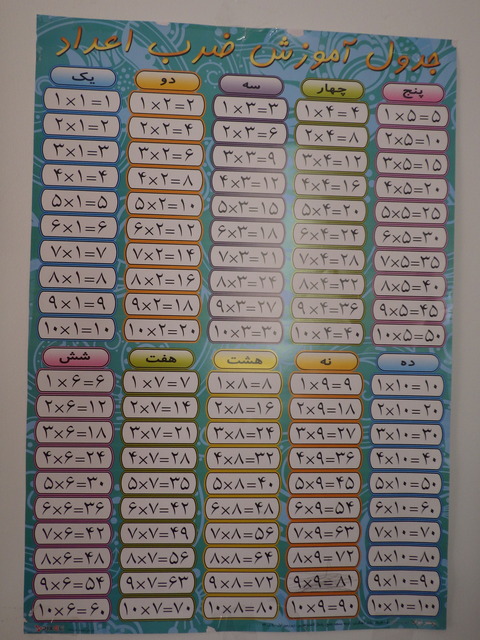 جدول آموزش ضرب اعداد
یک دو سه چهار پنج
۱×۱=۱ ۱×۲=۲ ۱×۳=۳ ۱×۴=۴ ۱×۵=۵
۲×۱=۲ ۲×۲=۴ ۲×۳=۶ ۲×۴=۸ ۲×۵=۱۰
۳×۱=۳ ۳×۲=۶ ۳×۳=۹ ۳×۴=۱۲ ۳×۵=۱۵
۴×۱=۴ ۴×۲=۸ ۴×۳=۱۲ ۴×۴=۱۶ ۴×۵=۲۰
۵×۱=۵ ۵×۲=۱۰ ۵×۳=۱۵ ۵×۴=۲۰ ۵×۵=۲۵
۶×۱=۶ ۶×۲=۱۲ ۶×۳=۱۸ ۶×۴=۲۴ ۶×۵=۳۰
۷×۱=۷ ۷×۲=۱۴ ۷×۳=۲۱ ۷×۴=۲۸ ۷×۵=۳۵
۸×۱=۸ ۸×۲=۱۶ ۸×۳=۲۴ ۸×۴=۳۲ ۸×۵=۴۰
۹×۱=۹ ۹×۲=۱۸ ۹×۳=۲۷ ۹×۴=۳۶ ۹×۵=۴۵
۱۰×۱=۱۰ ۱۰×۲=۲۰ ۱۰×۳=۳۰ ۱۰×۴=۴۰ ۱۰×۵=۵۰
شش هفت هشت نه ده
۱×۶=۶ ۱×۷=۷ ۱×۸=۸ ۱×۹=۹ ۱×۱۰=۱۰
۲×۶=۱۲ ۲×۷=۱۴ ۲×۸=۱۶ ۲×۹=۱۸ ۲×۱۰=۲۰
۳×۶=۱۸ ۳×۷=۲۱ ۳×۸=۲۴ ۳×۹=۲۷ ۳×۱۰=۳۰
۴×۶=۲۴ ۴×۷=۲۸ ۴×۸=۳۲ ۴×۹=۳۶ ۴×۱۰=۴۰
۵×۶=۳۰ ۵×۷=۳۵ ۵×۸=۴۰ ۵×۹=۴۵ ۵×۱۰=۵۰
۶×۶=۳۶ ۶×۷=۴۲ ۶×۸=۴۸ ۶×۹=۵۴ ۶×۱۰=۶۰
۷×۶=۴۲ ۷×۷=۴۹ ۷×۸=۵۶ ۷×۹=۶۳ ۷×۱۰=۷۰
۸×۶=۴۸ ۸×۷=۵۶ ۸×۸=۶۴ ۸×۹=۷۲ ۸×۱۰=۸۰
۹×۶=۵۴ ۹×۷=۶۳ ۹×۸=۷۲ ۹×۹=۸۱ ۹×۱۰=۹۰
۱۰×۶=۶۰ ۱۰×۷=۷۰ ۱۰×۸=۸۰ ۱۰×۹=۹۰ ۱۰×۱۰=۱۰۰